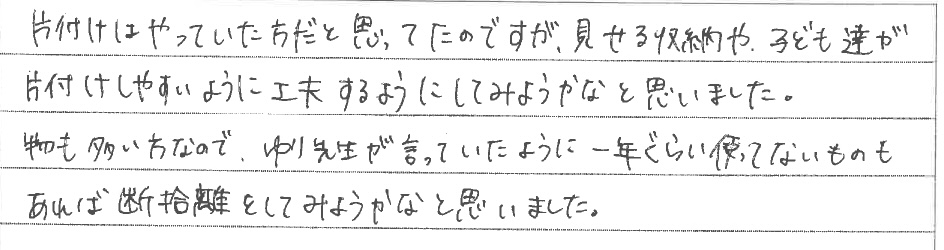 片付けはやっていた方だと思ってたのですが、見せる収納や、子ども達が
片付けしやすいように工夫するようにしてみようかなと思いました。
物も多い方なので、ゆり先生が言っていたように一年ぐらい使ってないものも
あれば断捨離をしてみようかなと思いました。